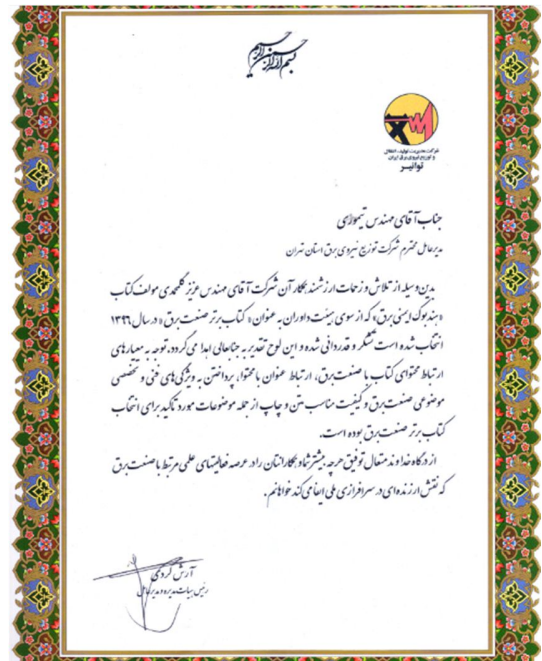 بسم الله الرحمن الرحیم
شرکت مدیریت تولید، انتقال
و توزیع نیروی برق ایران
توانیر
جناب آقای مهندس تیموری
مدیرعامل محترم شرکت توزیع نیروی برق استان تهران
بدین وسیله از تلاش و زحمات ارزشمند همکار آن شرکت آقای مهندس عزیز گلمحمدی مولف کتاب
«هندبوک ایمنی برق» که از سوی هیئت داوران به عنوان «کتاب برتر صنعت برق» در سال ۱۳۹۶
انتخاب شده است تشکر و قدردانی شده و این لوح تقدیر به جنابعالی اهدا می گردد. توجه به معیارهای
ارتباط محتوای کتاب با صنعت برق، ارتباط عنوان با محتوا، پرداختن به ویژگی های فنی و تخصصی
موضوعی صنعت برق و کیفیت مناسب متن و چاپ از جمله موضوعات مورد تاکید برای انتخاب
کتاب برتر صنعت برق بوده است.
از درگاه خداوند متعال توفیق هرچه بیشتر شما و همکارانتان را در عرصه فعالیتهای علمی مرتبط با صنعت برق
که نقش ارزنده ای در سرافرازی ملی ایفا می کند خواهانم.
آرش کردی
رئیس هیات مدیره و مدیرعامل